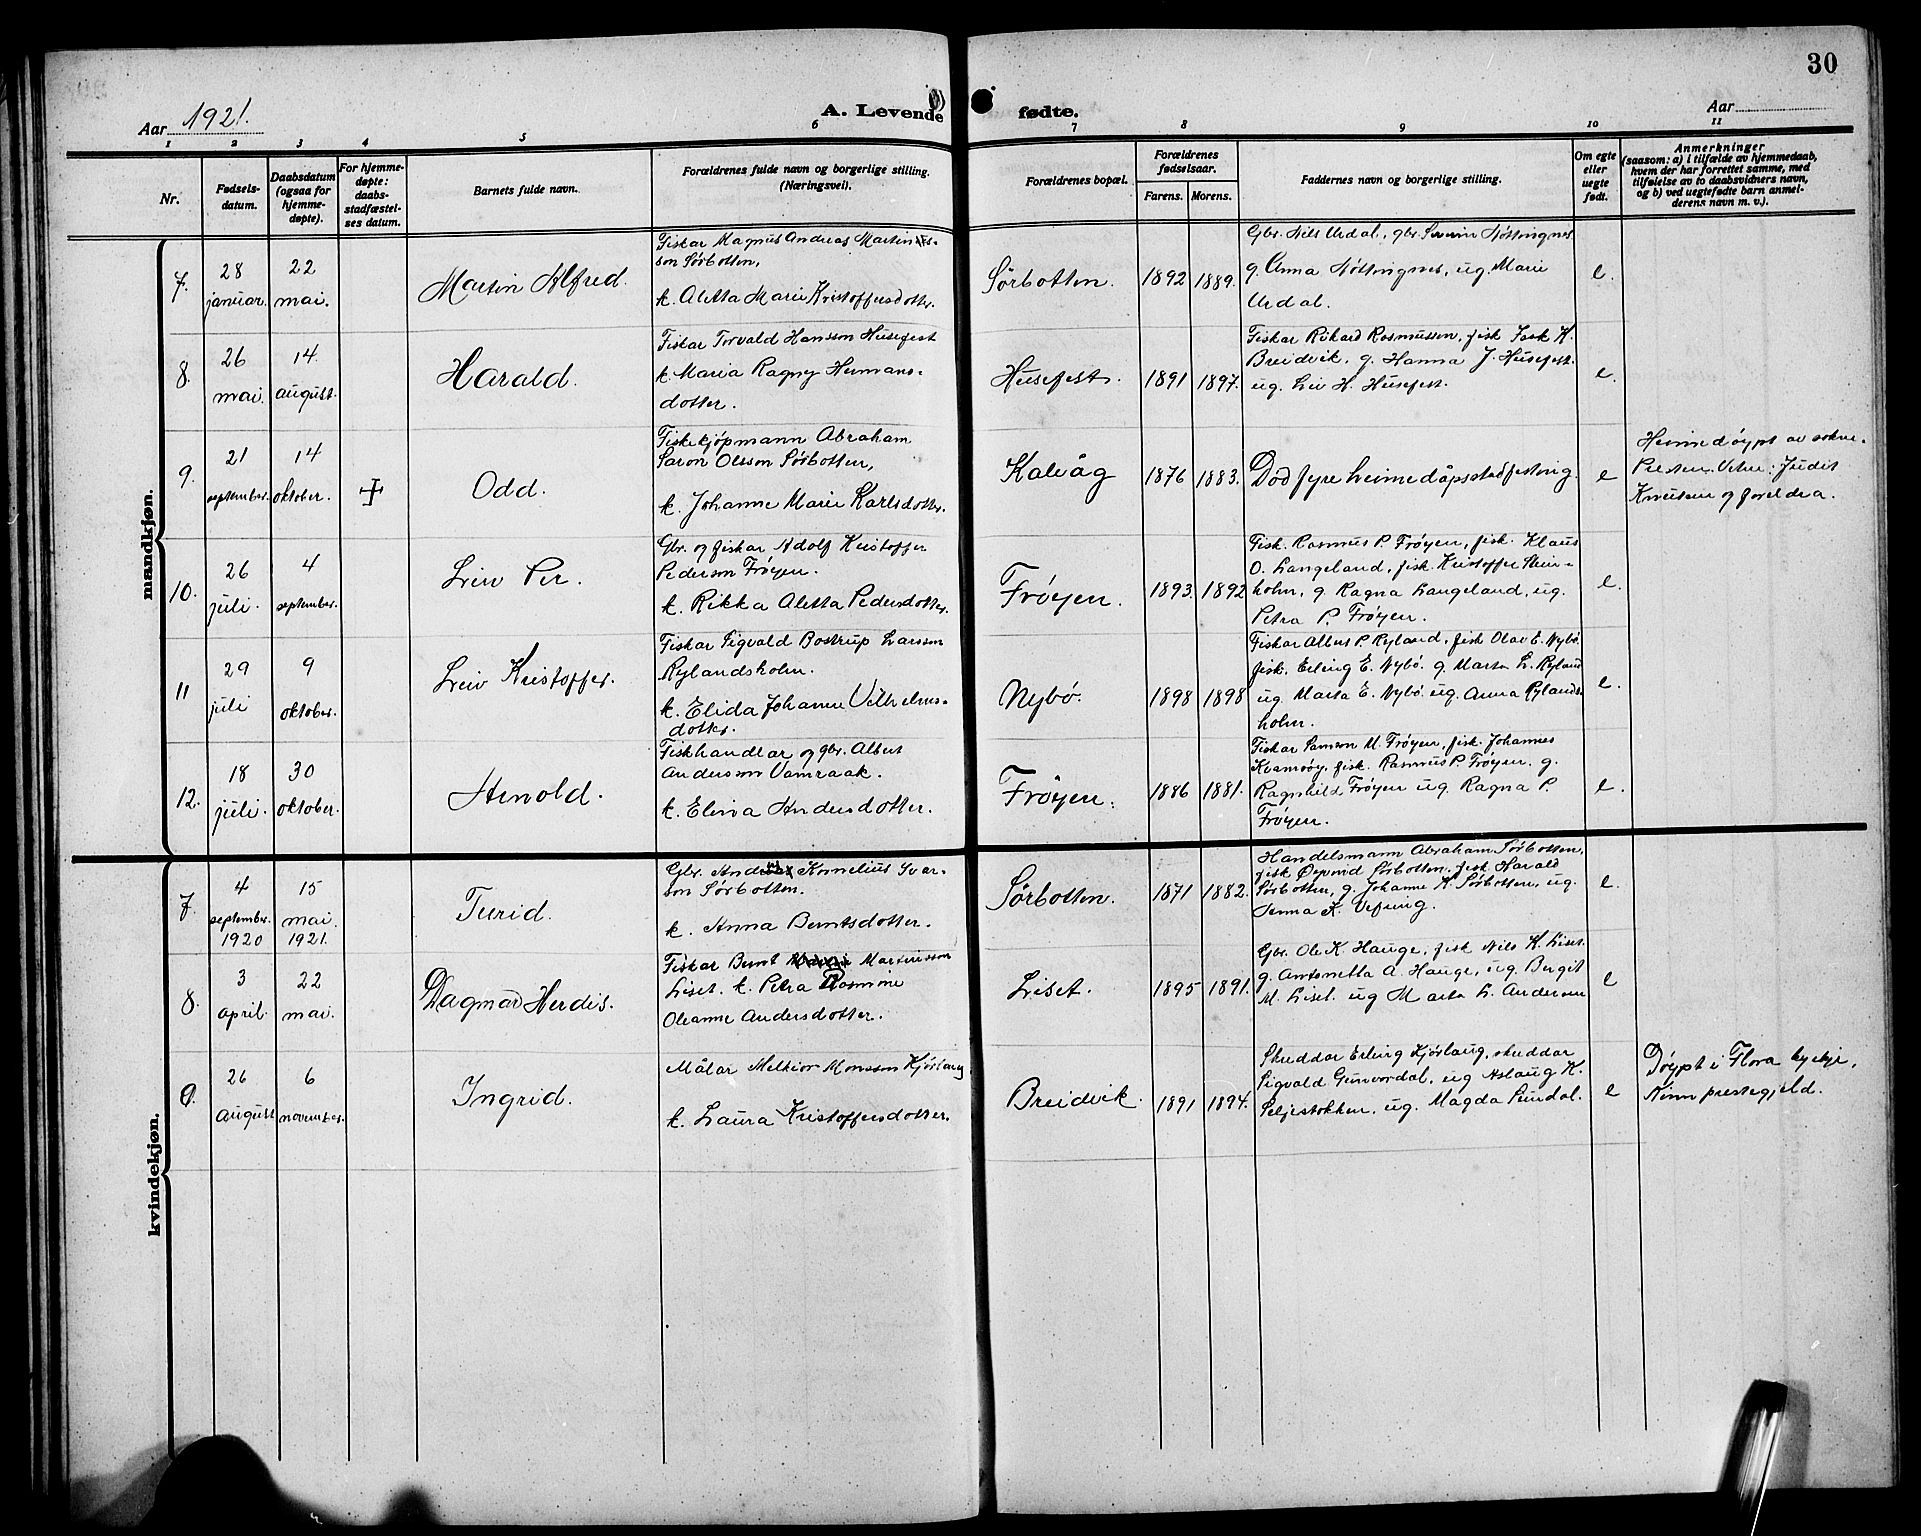 30
Aar 1921.
A. Levende
fødte.
Aar
1 2 3 4 5 6 7 8 9 10 11
Nr.
Fødsels-
datum.
Daabsdatum
(ogsaa for
hjemme-
døpte).
For hjemme-
døpte:
daabs-
stadfæstel-
ses datum.
Barnets fulde navn.
Forældrenes fulde navn og borgerlige stilling.
(Næringsvei).
Forældrenes bopæl.
Forældrenes
fødselsaar.
Farens. Morens.
Faddernes navn og borgerlige stilling.
Om egte
eller
uegte
født.
Anmerkninger
(saasom: a) i tilfælde av hjemmedaab,
hvem der har forrettet samme, med
tilføielse av to daabsvidners navn,
og b) ved uegtefødte barn anmel-
derens navn m. v.).
mandkjøn.
7.
28
januar.
22
mai.
Martin Alfred.
Fiskar Magnus Andreas Martinus-
son Sørbotten,
k. Aletta Marie Kristoffersdotter.
Sørbotten.
1892 1889.
Gbr. Nils Urdal, gbr. Søverin Nøttingnes
g. Anna Nøttingnes, ug. Marie
Urdal.
e.
8.
26
mai.
14
august.
Harald.
Fiskar Torvald Hansson Husefest
k. Maria Ragny Hermans-
dotter.
Husefest.
1891 1897.
Fiskar Rikard Rasmussen, fisk Isak K.
Breidvik, g. Hanna J. Husefest.
ug. Liv H. Husefest.
e.
9.
21
september.
14
oktober.
Odd.
Fiskekjøpmann Abraham
Saron Olsson Sørbotten,
k. Johanne Marie Karlsdotter.
Kalvåg
1876 1883.
Død fyre heimedåpsstadfesting.
e
Heimedøypt av sokne-
Presten. Vitne: Judit
Knutsen og foreldra.
10.
26
juli.
4
september.
Leiv Per.
Gbr. og fiskar Adolf Kristoffer
Pederson Frøyen.
k. Rikka Aletta Pedersdotter.
Frøyen.
1893. 1892
Fisk. Rasmus P. Frøyen, fisk. Klaus
O. Langeland, fisk. Kristoffer Stein-
holm, g. Ragna Langeland, ug.
Petra P. Frøyen.
e.
11
29
juli
9
oktober.
Leiv Kristoffer.
Fiskar Sigvald Bostrup Larsson
Rylandsholm.
k. Elida Johanne Vilhelms-
dotter.
Nybø.
1898 1898
Fiskar Albert P. Ryland, fisk Olav E. Nybø.
fisk. Erling E. Nybø. g. Marta L. Ryland
ug. Marta E. Nybø. ug. Anna Rylands-
holm.
e.
12.
18
juli.
30
oktober.
Arnold.
Fiskhandlar og gbr. Albert
Anderson Vamraak.
k. Elina Andersdotter.
Frøyen.
1886 1881.
Fiskar Samson M. Frøyen, fisk. Johannes
Kvamsøy, fisk. Rasmus P. Frøyen. g.
Ragnhild Frøyen ug. Ragna P.
Frøyen.
e.
kvindekjøn.
7.
4
september.
1920
15
mai.
1921.
Turid.
Gbr. Kornelius Ivar-
son Sørbotten.
k. Anna Berntsdotter.
Sørbotten.
1871 1882.
Handelsmann Abraham Sørbotten,
fisk Øyvind Sørbotten. fisk Harald
Sørbotten, g. Johanne K. Sørbotten, ug.
Jenna K. Vefring.
e.
8.
3
april.
22
mai.
Dagmar Herdis.
Fiskar Bernt Martinusson
Liset. k. Petra Rasmine
Oleanne Andersdotter.
Liset.
1895 1891.
Gbr. Ole K. Hauge, fisk Nils K. Liset.
g. Antonetta A. Hauge, ug. Bergit
M. Liset. ug Marta L. Andersen
e
9.
26
August
6
november.
Ingrid.
Målar Melkior Monsson Kjørlaug
k. Laura Kristoffersdotter.
Breidvik.
1891 1894.
Skreddar Erling Kjørlaug, skreddar
Sigvald Gunvordal, ug Aslaug K.
Seljestokken, ug. Magda Sundal.
e
Døypt i Flora kyrkje,
Kinn prestegjeld.